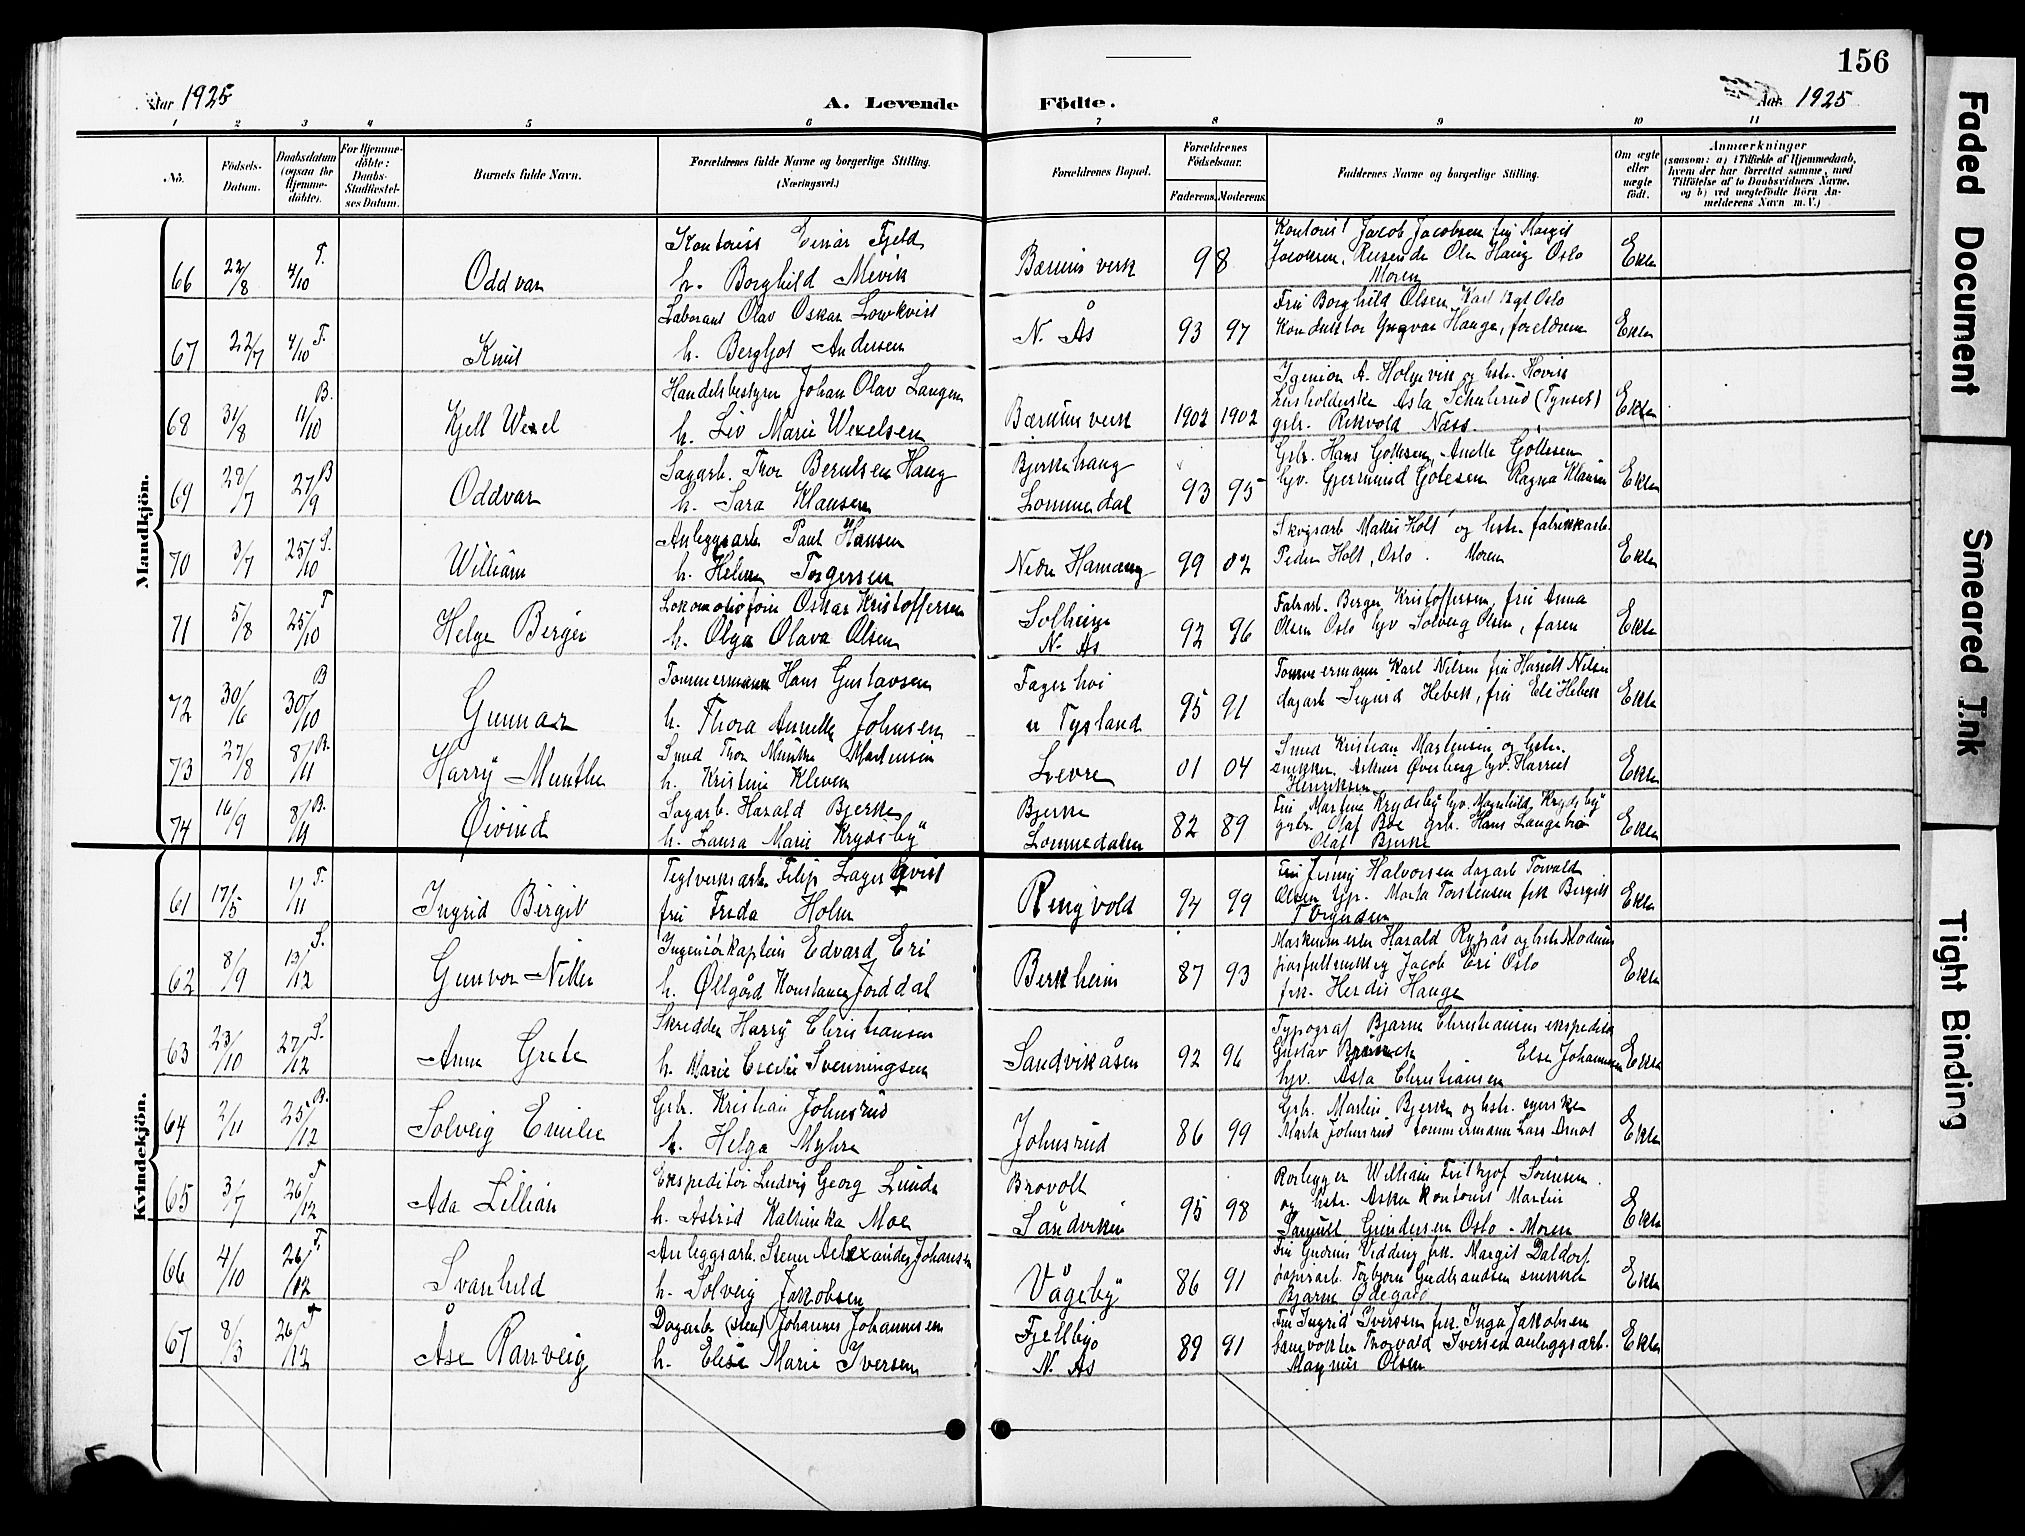 156
Aar 1925
A. Levende
Födte.
Aar 1925
1 2 3 4 5 6 7 8 9 10 11
Nö.
Födsels-Datum.
Daabsdatum (ogsaa for Hjemmedöbte).
For Hjemmedöbte: Daabs-Stadfæstelses Datum.
Barnets fulde Navn.
Forældrenes fulde Navne og borgerlige Stilling. (Næringsvei.)
Forældrenes Bopæl.
Forældrenes Födselsaar.
Faderens. Moderens.
Faddernes Navne og borgerlige Stilling.
Om ægte eller uægte födt.
Anmærkninger
(saasom: a) i Tilfælde af Hjemmedaab, hvem der har forrettet samme, med Tilföielse af to Daabsvidners Navne, og b) ved uægtefödte Börn Anmelderens Navn m. V.)
Mandkjön.
66 22/8 4/10 T. Oddvar
Kontorist Einar Fjeld
h. Borghild Mevik
Bærums verk 98
Kontorist Jacob Jacobsen fru Margit
Jacobsen, Reisende Ola Haug Oslo
Moren
Ekte
67 22/7 4/10 T. Knut
Laborant Olav Oskar Lowkvist
h. Bergljot Andersen
N. Ås 93 97
Fru Borghild Olsen, Karl Oslo
Konduktør Yngvar Hauge, foreldrene
Ekte
68 31/8 11/10 B. Kjell Wexel
Handelsbestyrer Johan Olav Langen
h. Liv Marie Wexelsen
Bærums verk 1902 1902
A. Holmevik og hstr.
husholderske Asta Schulerud (Tynset)
gbr. Rikvold Næss.
Ekte
69 28/7 27/9 B Oddvar
Sagarb. Thor Berntsen Haug
h. Sara Klausen
Bjerkehaug
Lommedal 93 95
Gbr. Hans Gottesen, Anette Gottesen
hjv. Gjermund Gotesen Ragna Klausen
Ekte
70 3/7 25/10 S. William
Anleggsarb. Paul Hansen
h. Helene Torgersen
Nedre Hamang 99 02
Skogsarb Holt og hstr. fabrikkarb.
Peder Holt, Oslo. Moren
Ekte
71 5/8 25/10 T Helge Berger
Lokomotivfører Oskar Kristoffersen
h. Olga Olava Olsen
Solheim
N. Ås 92 96
Fabrarb. Berger Kristoffersen, fru Anna
Olsen Oslo hjv Solveig Olsen, faren
Ekte
72 30/6 30/10 B Gunnar
Tømmermann Hans Gustavsen
h. Thora Annette Johnsen
Fagerhøi
u Tysland 95 91
Tømmermann Karl Nilsen fru Harriett Nilsen
dagarb Sigurd Hebekk, fru Eli Hebekk
Ekte
73 27/8 8/11 B. Harry Munthe
Smed Thor Munthe Martensen
h. Kristine Kleven
Levre 01 04
Smed Kristian Martensen og hstr.
snekker Øverberg hjv. Harriet
Henriksen
Ekte
74 16/9 8/11 B. Øivind
Sagarb. Harald Bjerke
h. Laura Marie Krydsby
Bjerke
Lommedalen 82 89
Fru Martine Krydsby hjv. Magnhild Krydsby
gbr. Olaf Boe gbr. Hans Langebro
Olaf Bjerke
Ekte
Kvindekjön.
61 17/5 1/11 T. Ingrid Birgit
Teglverksarb. Filip Lagerqvist
fru Frida Holm
Ringvold 94 99
Fru Jenny Halvorsen dagarb Torvald
Olsen Marta Torstensen frk Birgitt
Ekte
62 8/9 13/12 S. Gunvor Nikken
Ingeniørkaptein Edvard Eri
h. Øllgård Konstance Jorddal
Berkheim 87 93
Maskinmester Harald Rypås og hstr Modum
Jacob Eri Oslo
frk. Herdis Hauge
Ekte
63 23/10 27/12 S. Anne Grete
Skredder Harry Christiansen
h. Marie Cecilie Svenningsen
Sandvikåsen 92 96
Typograf Bjarne Christiansen ekspeditør
Gustav Else Johannesen
hjv. Asta Christiansen
Ekte
64 2/11 25/12 B. Solveig Emilie
Gbr. Kristian Johnsrud
h. Helga Myhre
Johnsrud 86 99
Gbr. Martin Bjerke og hstr. syerske
Marta Johnsrud tømmermann Lars
Ekte
65 3/7 26/12 T Ada Lillian
Ekspeditør Ludvig Georg Lunde
h. Astrid Kathinka Moe
Brovolt
Sandviken 95 98
Rørlegger William Fritjof Sørensen
og hstr. Asker kontorist Martin
Samuel Gundersen Oslo - Moren
Ekte
66 4/10 26/12 T. Svanhild
Anleggsarb. Stener Alexander Johansen
h. Solveig Jakobsen
Vågeby 86 91
Fru Gudrun Vedding frk. Margit Daldorf
papirarb. Torbjørn Gudbrandsen
Bjarne Ødegård
Ekte
67 8/3 26/12 T Åse Ranveig
Dagarb. (sten) Johannes Johannesen
h. Elise Marie Iversen
Fjellbyo
N. Ås 89 91
Fru Ingrid Iversen frk. Inga Jakobsen
banevokter Thorvald Iversen anleggsarb.
Magnus Olsen
Ekte
Faded Document
Smeared Ink
Tight Binding